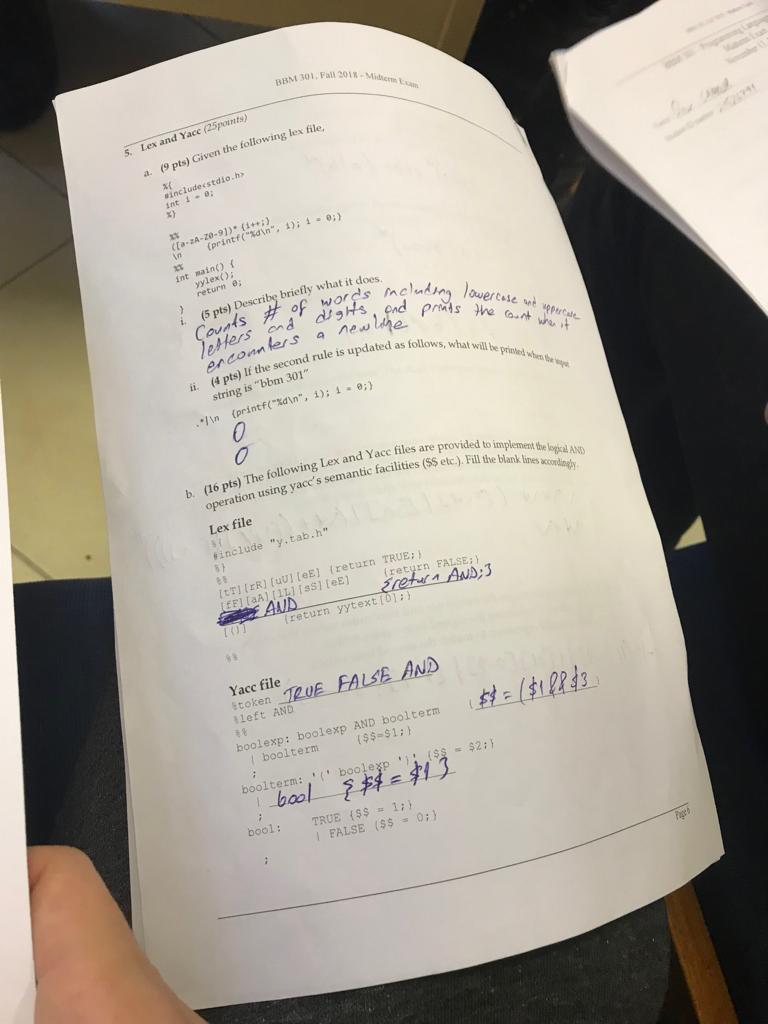 BBM 301, Fall 2018 - Midterm Exam
5. Lex and Yacc (25points)
a. (9 pts) Given the following lex file,
%{
#include<stdio.h>
int i = 0;
%}
%%
([a-zA-Z0-9])* {i++;}
\n {printf("%d\n", i); i = 0;}
%%
int main() {
yylex();
return 0;
}
i. (5 pts) Describe briefly what it does.
Counts # of words including lowercase and uppercase
letters and digits and prints the count when it
encounters a newline
ii. (4 pts) If the second rule is updated as follows, what will be printed when the input
string is "bbm 301"
.*|\n {printf("%d\n", i); i = 0;}
0
0
b. (16 pts) The following Lex and Yacc files are provided to implement the logical AND
operation using yacc's semantic facilities ($$ etc.). Fill the blank lines accordingly.
Lex file
%{
#include "y.tab.h"
%}
%%
[tT][rR][uU][eE] {return TRUE;}
[fF][aA][lL][sS][eE] {return FALSE;}
AND {return AND;}
[()] {return yytext[0];}
%%
Yacc file
%token TRUE FALSE AND
%left AND
%%
boolexp: boolexp AND boolterm { $$ = ($1 && $3
| boolterm {$$=$1;}
;
boolterm: '(' boolexp ')' {$$ = $2;}
| bool {$$ = $1}
;
bool: TRUE {$$ = 1;}
| FALSE {$$ = 0;}
;
Page 6